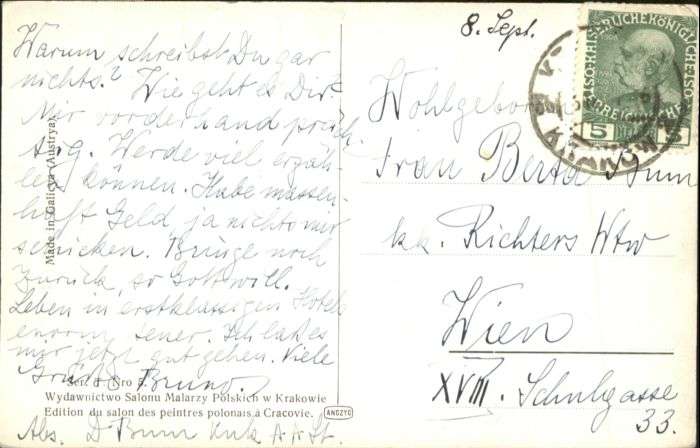 8. Sept.
Warum schreibst Du gar
nichts? Wie geht es Dir?
Mir vorderhand präch-
tig. Werde viel erzäh-
len können. Habe massen-
haft Geld, ja nichts mir
schicken. Bringe noch
zurück, so Gott will.
Leben in erstklassigen Hotel
enorm teuer. Ich lass es
mir jetzt gut gehen. Viele
Grüße Bruno.
Made in Galicya (Austrya).
Ser. Nro
Wydawnictwo Salonu Malarzy Polskich w Krakowie
Edition du salon des peintres polonais à Cracovie.
ANCZYC
Abs. Dr
Wohlgeboren
Frau Berta
k.k. Richters Wtw
Wien
XVIII. Schulgasse
33.
KRAKÓW
5 5